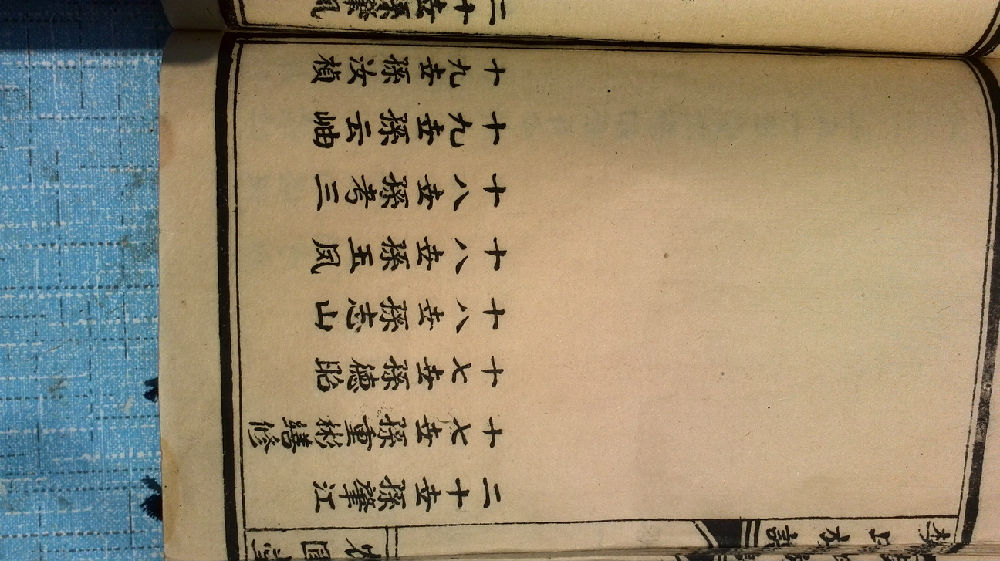 二十世孫肇江
十七世孫重彬繕修
十七世孫德昭
十八世孫志山
十八世孫玉凤
十八世孫考三
十九世孫云岫
十九世孫汝楨
二十世孫肇凤